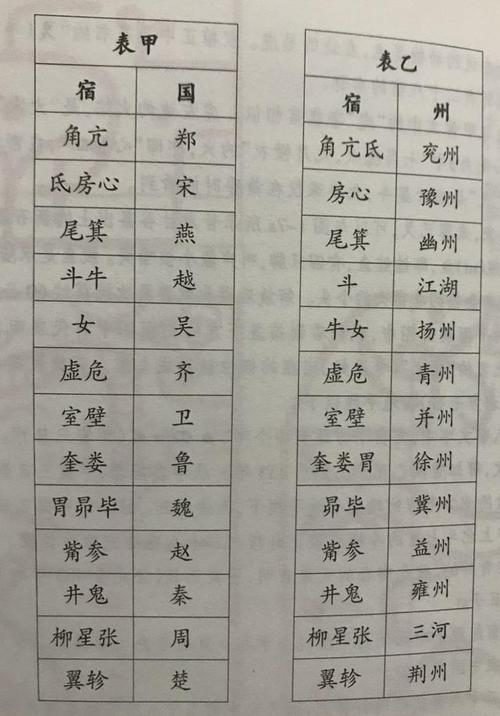 表甲
宿 国
角亢 郑
氐房心 宋
尾箕 燕
斗牛 越
女 吴
虚危 齐
室壁 卫
奎娄 鲁
胃昴毕 魏
觜参 赵
井鬼 秦
柳星张 周
翼轸 楚
表乙
宿 州
角亢氐 兖州
房心 豫州
尾箕 幽州
斗 江湖
牛女 扬州
虚危 青州
室壁 并州
奎娄胃 徐州
昴毕 冀州
觜参 益州
井鬼 雍州
柳星张 三河
翼轸 荆州